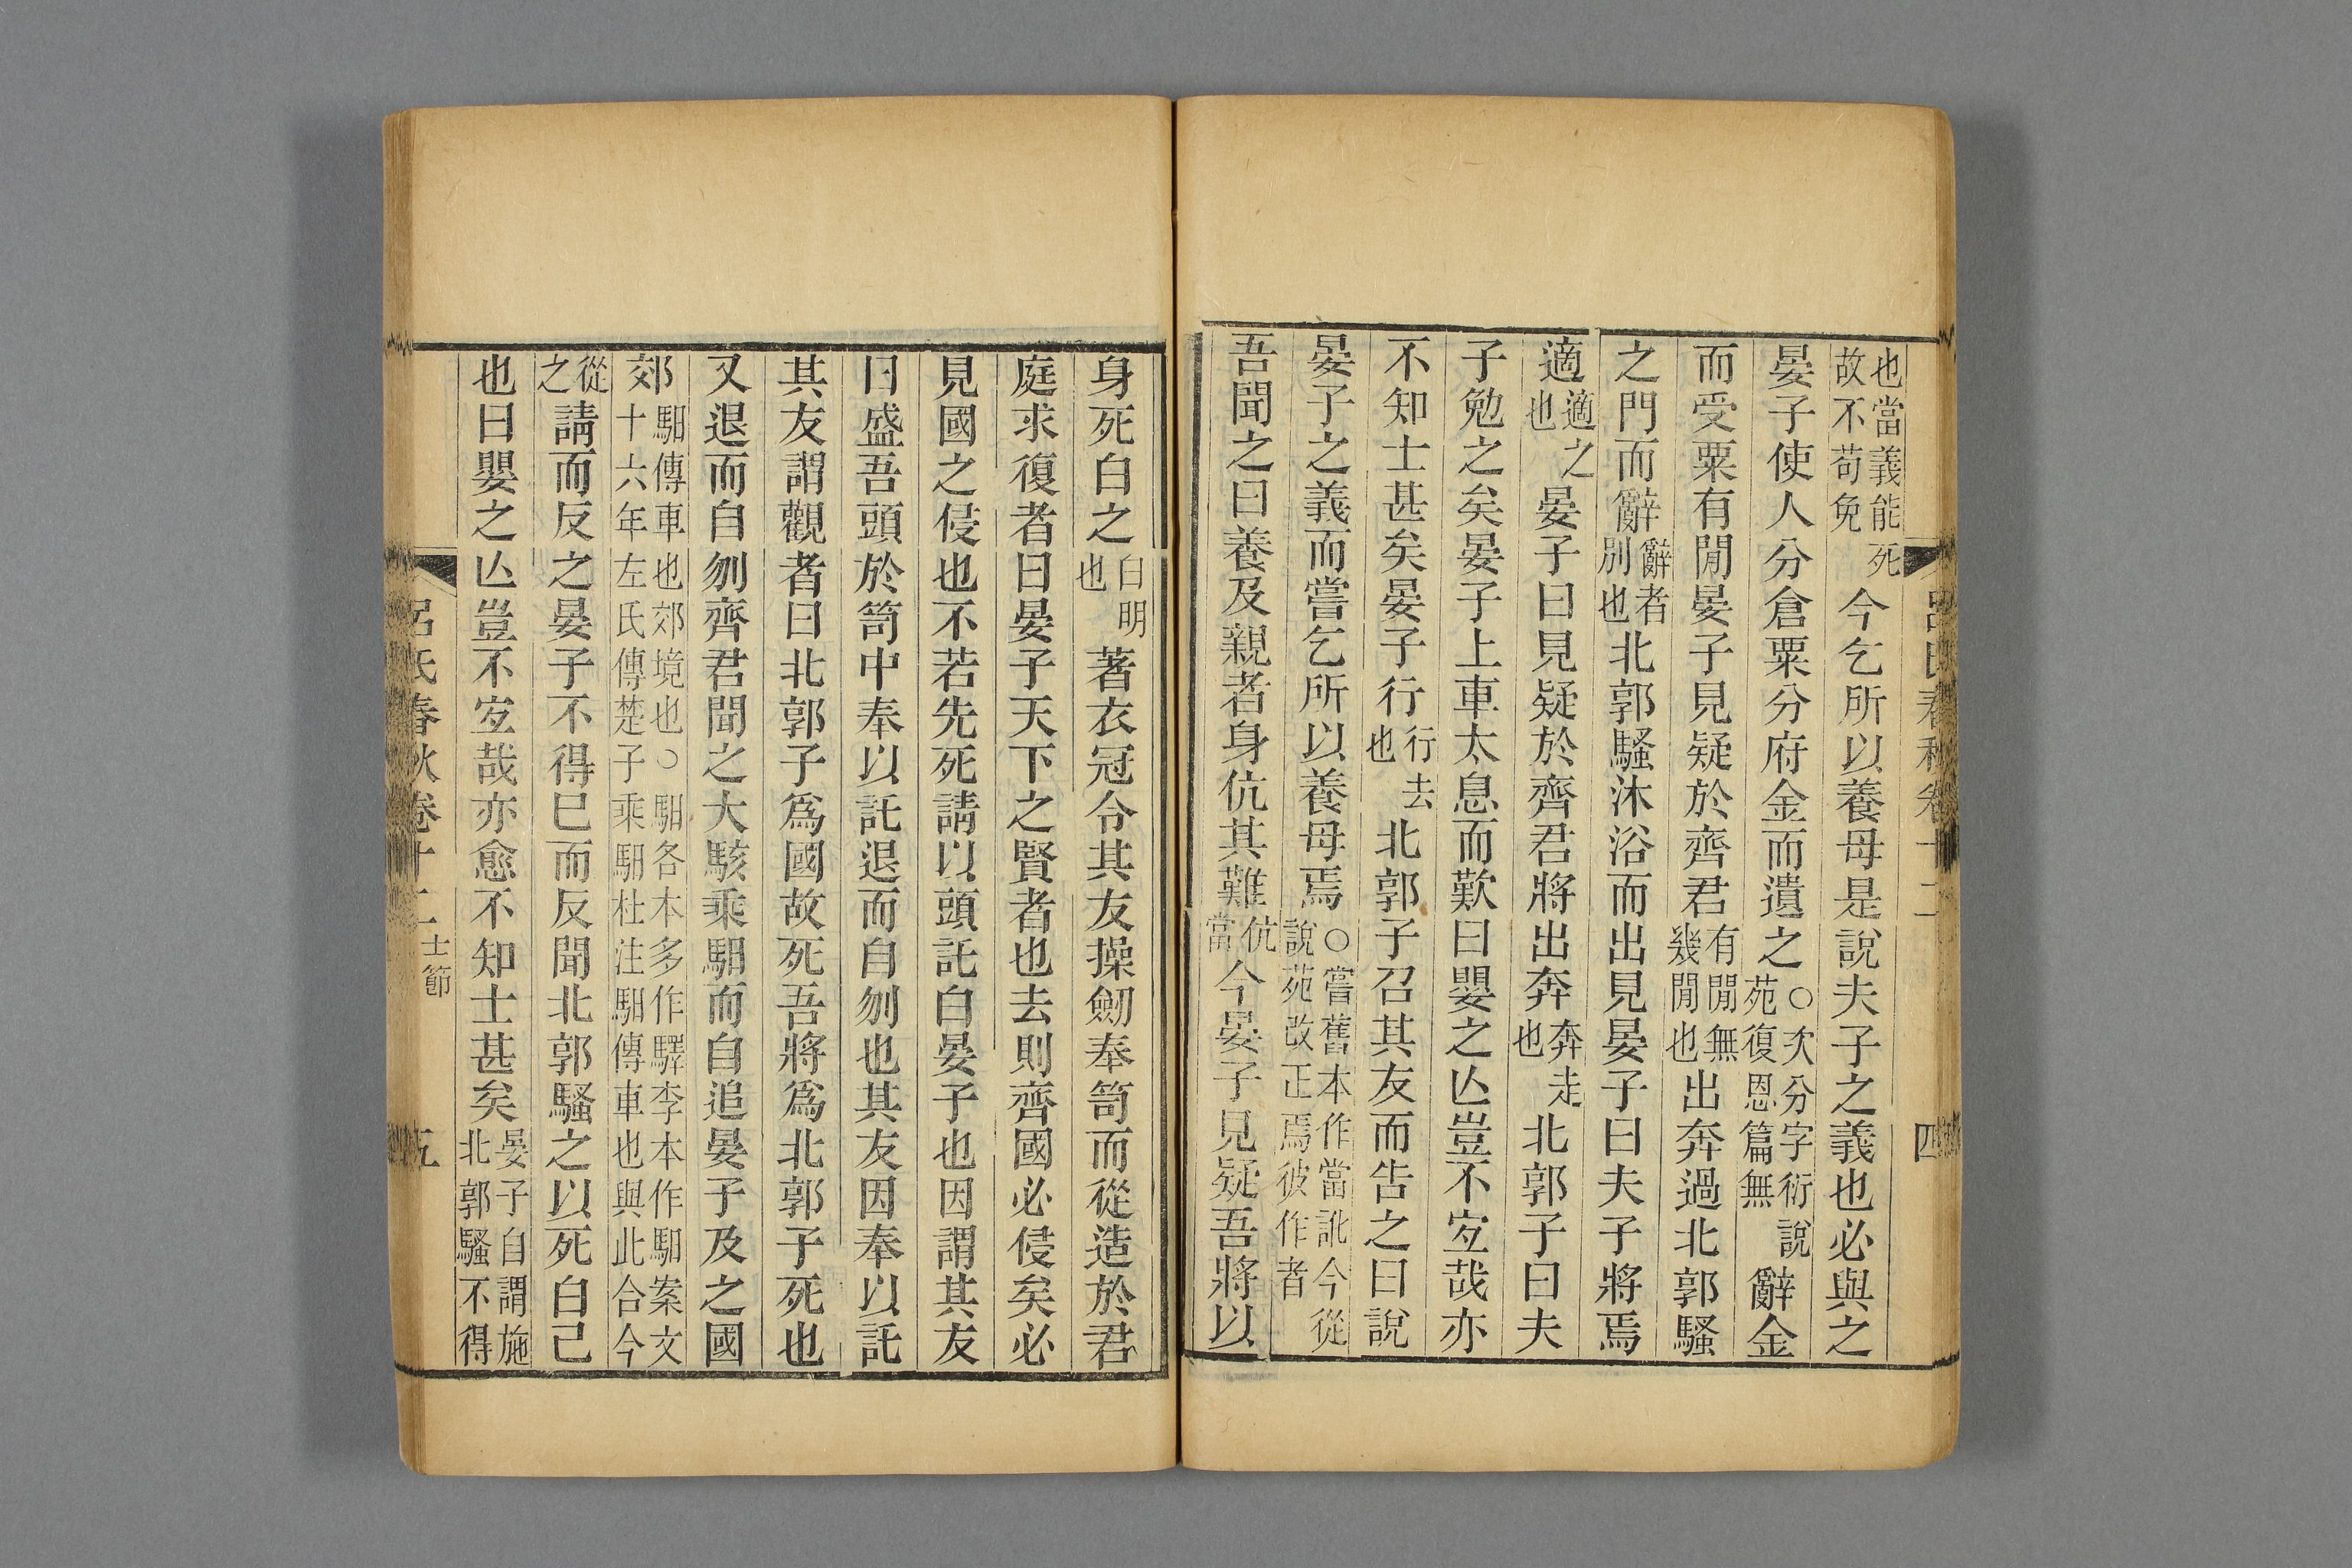 呂氏春秋卷十二 四
也當義能死故不苟免今乞所以養母是說夫子之義也必與之
晏子使人分倉粟分府金而遺之○次分字衍說苑復恩篇無辭金
而受粟有閒晏子見疑於齊君有閒無幾閒也出奔過北郭騷
之門而辭辭者別也北郭騷沐浴而出見晏子曰夫子將焉
適適之也晏子曰見疑於齊君將出奔奔走也北郭子曰夫
子勉之矣晏子上車太息而歎曰嬰之亾豈不宐哉亦
不知士甚矣晏子行行去也北郭子召其友而告之曰說
晏子之義而嘗乞所以養母焉○嘗舊本作當訛今從說苑改正焉彼作者
吾聞之曰養及親者身伉其難伉當今晏子見疑吾將以
身死白之白明也著衣冠令其友操劒奉笥而從造於君
庭求復者曰晏子天下之賢者也去則齊國必侵矣必
見國之侵也不若先死請以頭託白晏子也因謂其友
曰盛吾頭於笥中奉以託退而自刎也其友因奉以託
其友謂觀者曰北郭子爲國故死吾將爲北郭子死也
又退而自刎齊君聞之大駭乘馹而自追晏子及之國
郊馹傳車也郊境也○馹各本多作驛李本作馹案文十六年左氏傳楚子乘馹杜注馹傳車也與此合今
從之請而反之晏子不得已而反聞北郭騷之以死白己
也曰嬰之亾豈不宐哉亦愈不知士甚矣晏子自謂施北郭騷不得
呂氏春秋卷十二 士節 五